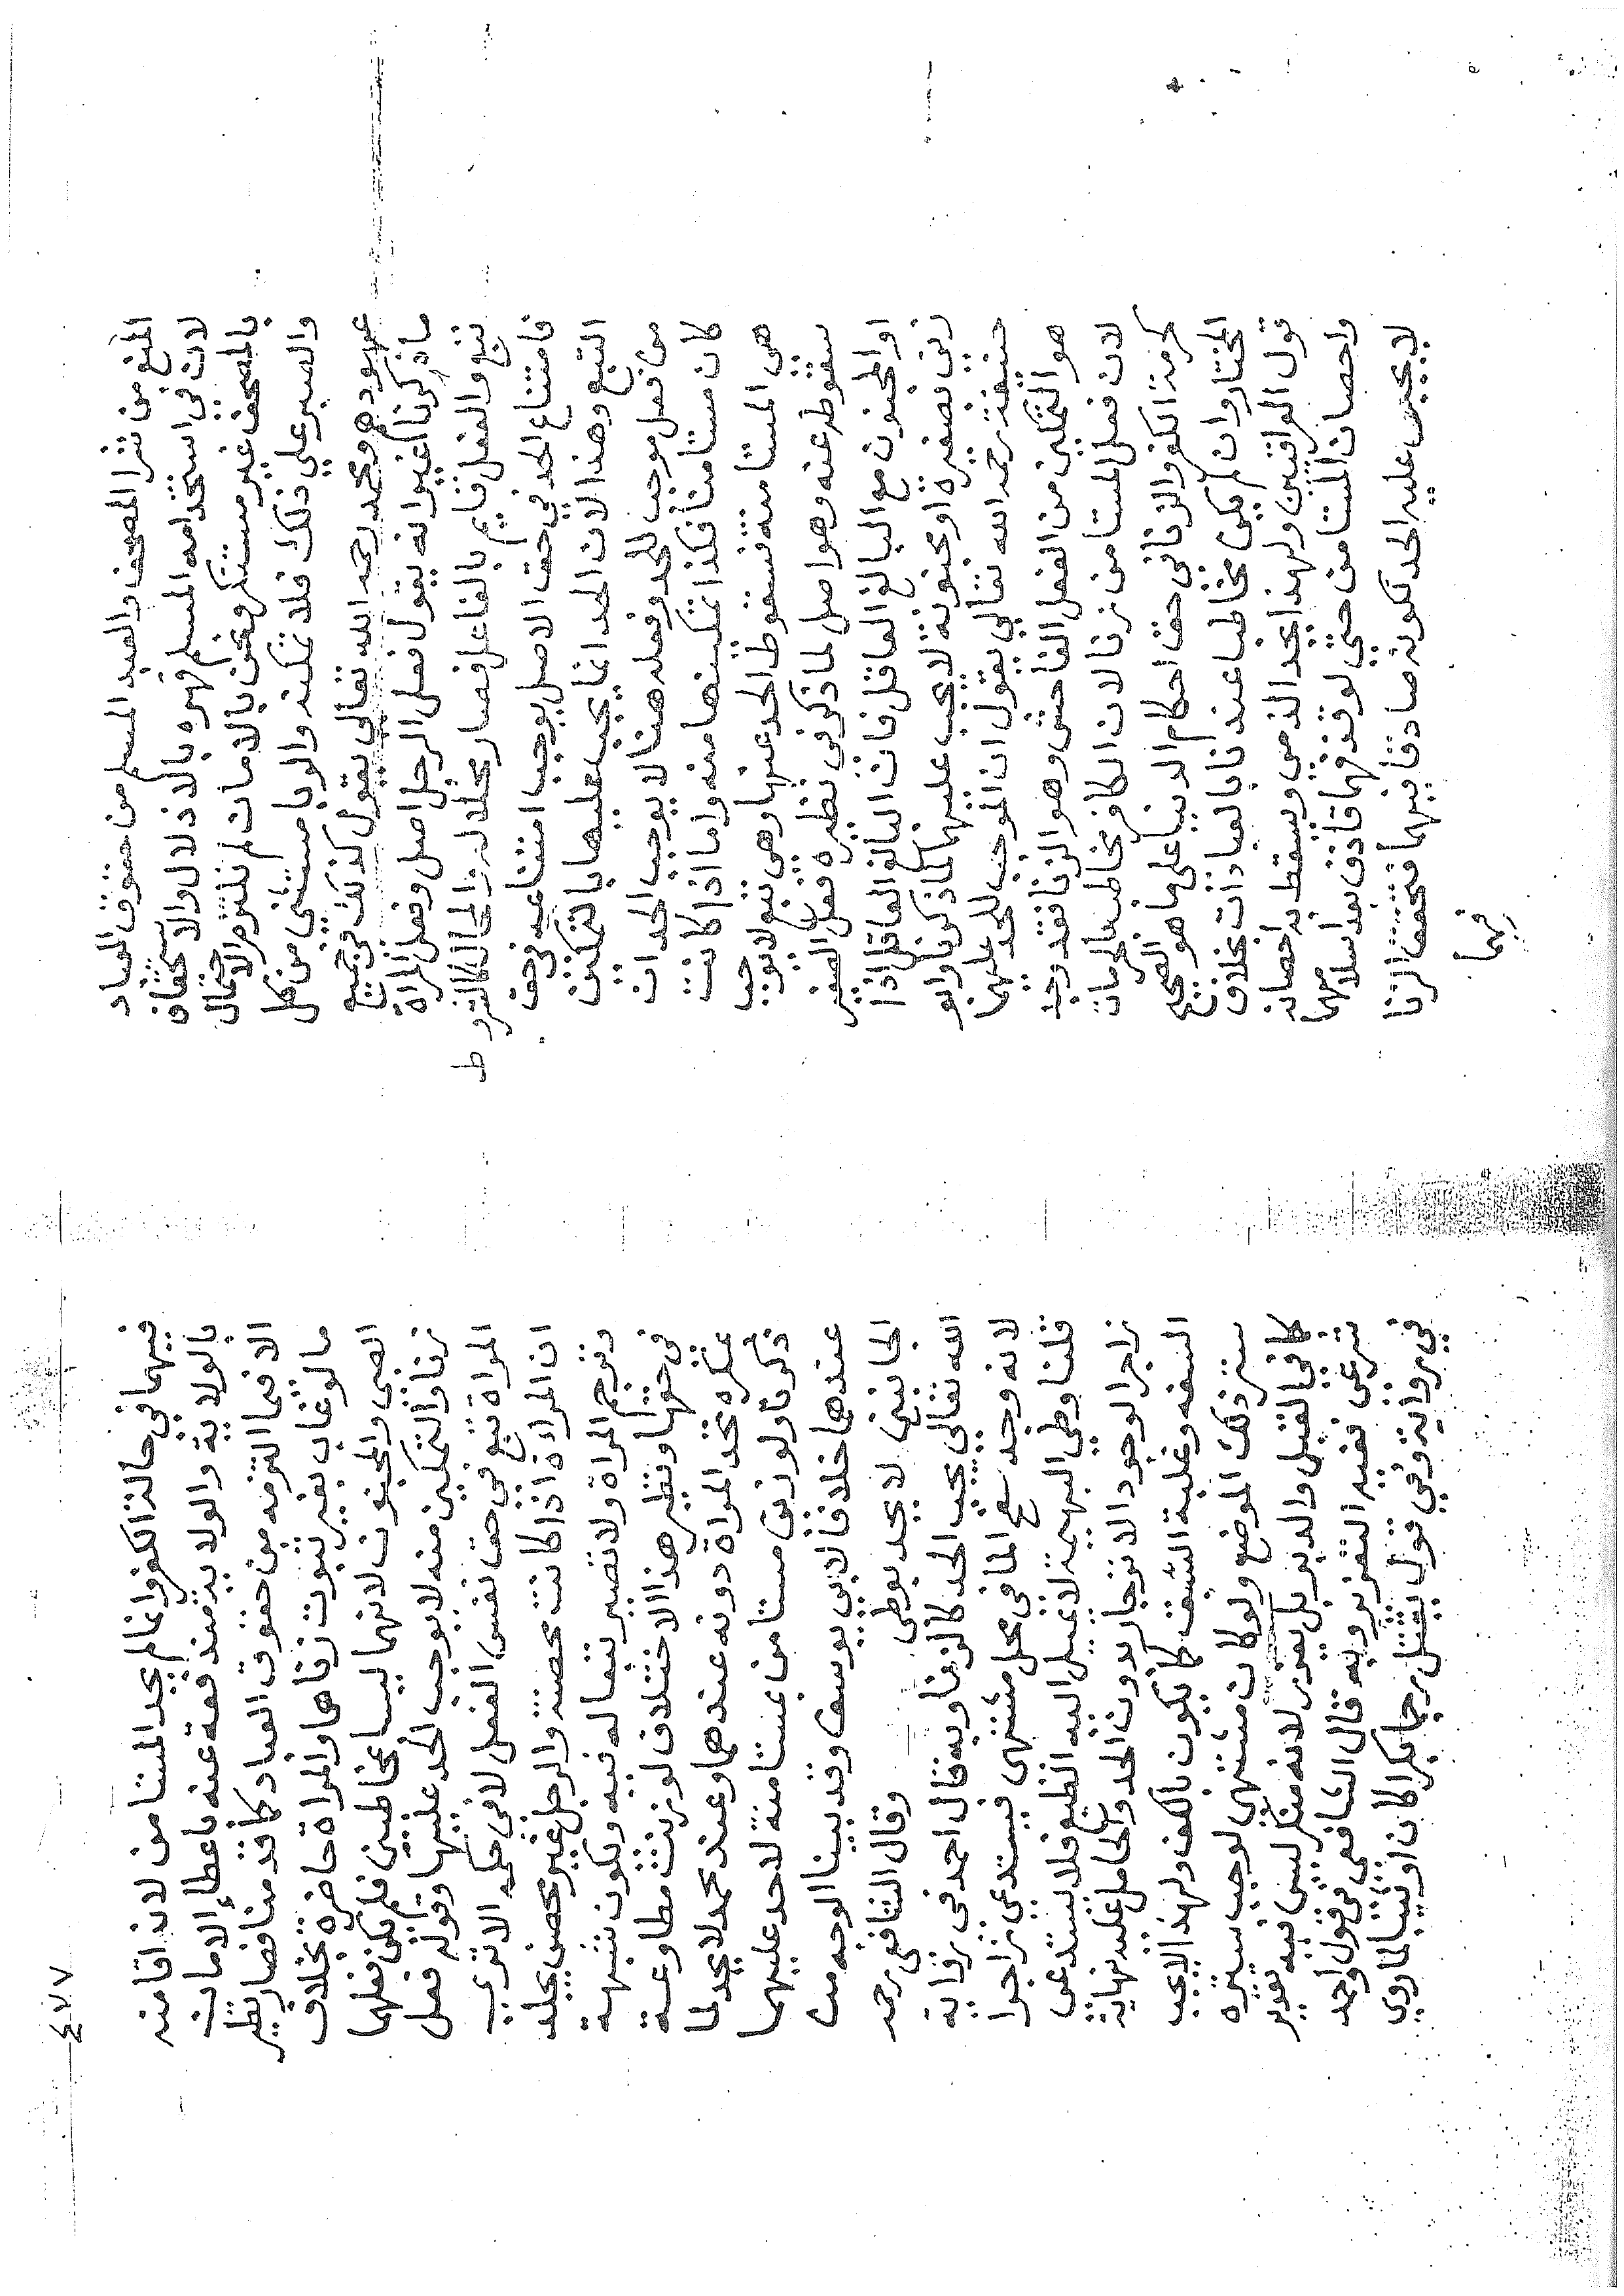 المنع من شرا المصحف والعبد المسلم من حقوق العباد
لان في استخدامه المسلم قهره بالاذلال والاستخفاف
بالمصحف غير مستنكر ونحن بالامان لم نلتزم الاحتمال
والصبر علي ذلك فلا تمكنه والربا مستثني من كل
عهودهم ومحمد رحمه الله تعالي يقول كذلك في جميع
ما ذكرنا غير انه يقول فعل الرجل اصل وفعل المراة
تبع والفعل قايم بالفاعل فصار محلا له والمحال كالشروط
فامتناع الحد في حق الاصل يوجب امتناعه في حق
التبع وهذا لان الحد انما يجب عليها بالتمكين
من فعل موجب للحد وفعله هنا لا يوجب الحد ان
كان مستامنا فكذا تمكينها منه واما اذا كانت
هي المستامنة فسقوط الحد عنها وهي تبع لا يوجب
سقوطه عنه وهو اصل لما ذكر في نظيره فعل الصغير
او المجنون مع البالغ العاقل فان البالغ العاقل اذا
زني بصغيرة او مجنونة لا يجب عليهما كما ذكرنا وابو
حنيفة رحمه الله تعالي يقول ان الموجب للحد عليها
هو التمكين من الفعل الفاحش وهو الزنا فقد وجد
لان فعل المستامن زنا لان الكافر مخاطب بالحرمات
كحرمة الكفر والزنا في حق احكام الدنيا علي ما هو الصحيح
المختار وان لم يكن مخاطبا عندنا بالعبادات بخلاف
قول العراقيين ولهذا يحد الذمي ويسقط به احصانه
واحصان المستامن حتي لو قذفهما قاذف بعد اسلامهما
لا يجب عليه الحد لكونه صادقا فيهما فتحقق الزنا
فيهما
٤٧٧
فيهما في حالة الكفر وانما لم يحد المستامن لان اقامته
بالولاية والولاية مندفعة عنه باعطاء الامان
الا فيما التزمه من حقوق العباد كما قدمنا فصار نظير
ما لو غاب بغير ثبوت زناها والمراة حاضرة بخلاف
الصبي والمجنون لانهما ليسا مخاطبين فلم يكن فعلهما
زنا والتمكين منه لا يوجب الحد عليها وقوله فعل
المراة تبع في حق نفس الفعل لا في حكمه الا تري
ان المراة اذا كانت محصنة والرجل غير محصن يجلد
وترجم المراة ولا تصير تبعا له فيه ويكون شبهة
في حقها ونظير هذا الاختلاف لو زنت مطاوعة
بمكره تحد المراة دونه عندهما وعند محمد لا يحد لما
ذكرنا ولو زني مستامن بمستامنة لا حد عليهما
عندهما خلافا لابي يوسف وقد بينا الوجه من
الجانبين لا يحد بوطي وقال الشافعي رحمه
الله تعالي يجب الحد كالزنا وبه قال احمد في رواية
لانه وجد سفح الما في محل مشتهي فيستدعي زاجرا
قلنا وطي البهيمة لا يميل اليه الطبع فلا يستدعي
زاجرا لوجود الانزجار بدون الحد والحامل عليه نهاية
السفه وغلبة الشبق كما يكون بالكف ولهذا لا يجب
ستر ذلك الموضع ولو كان مشتهي لوجب ستره
كما في القبل والدبر بل يعزر لانه منكر ليس فيه تقدير
شرعي ففيه التعزير وبه قال الشافعي في قول واحمد
في رواية وفي قول يقتل رجما بكرا كان او ثيبا لما روي